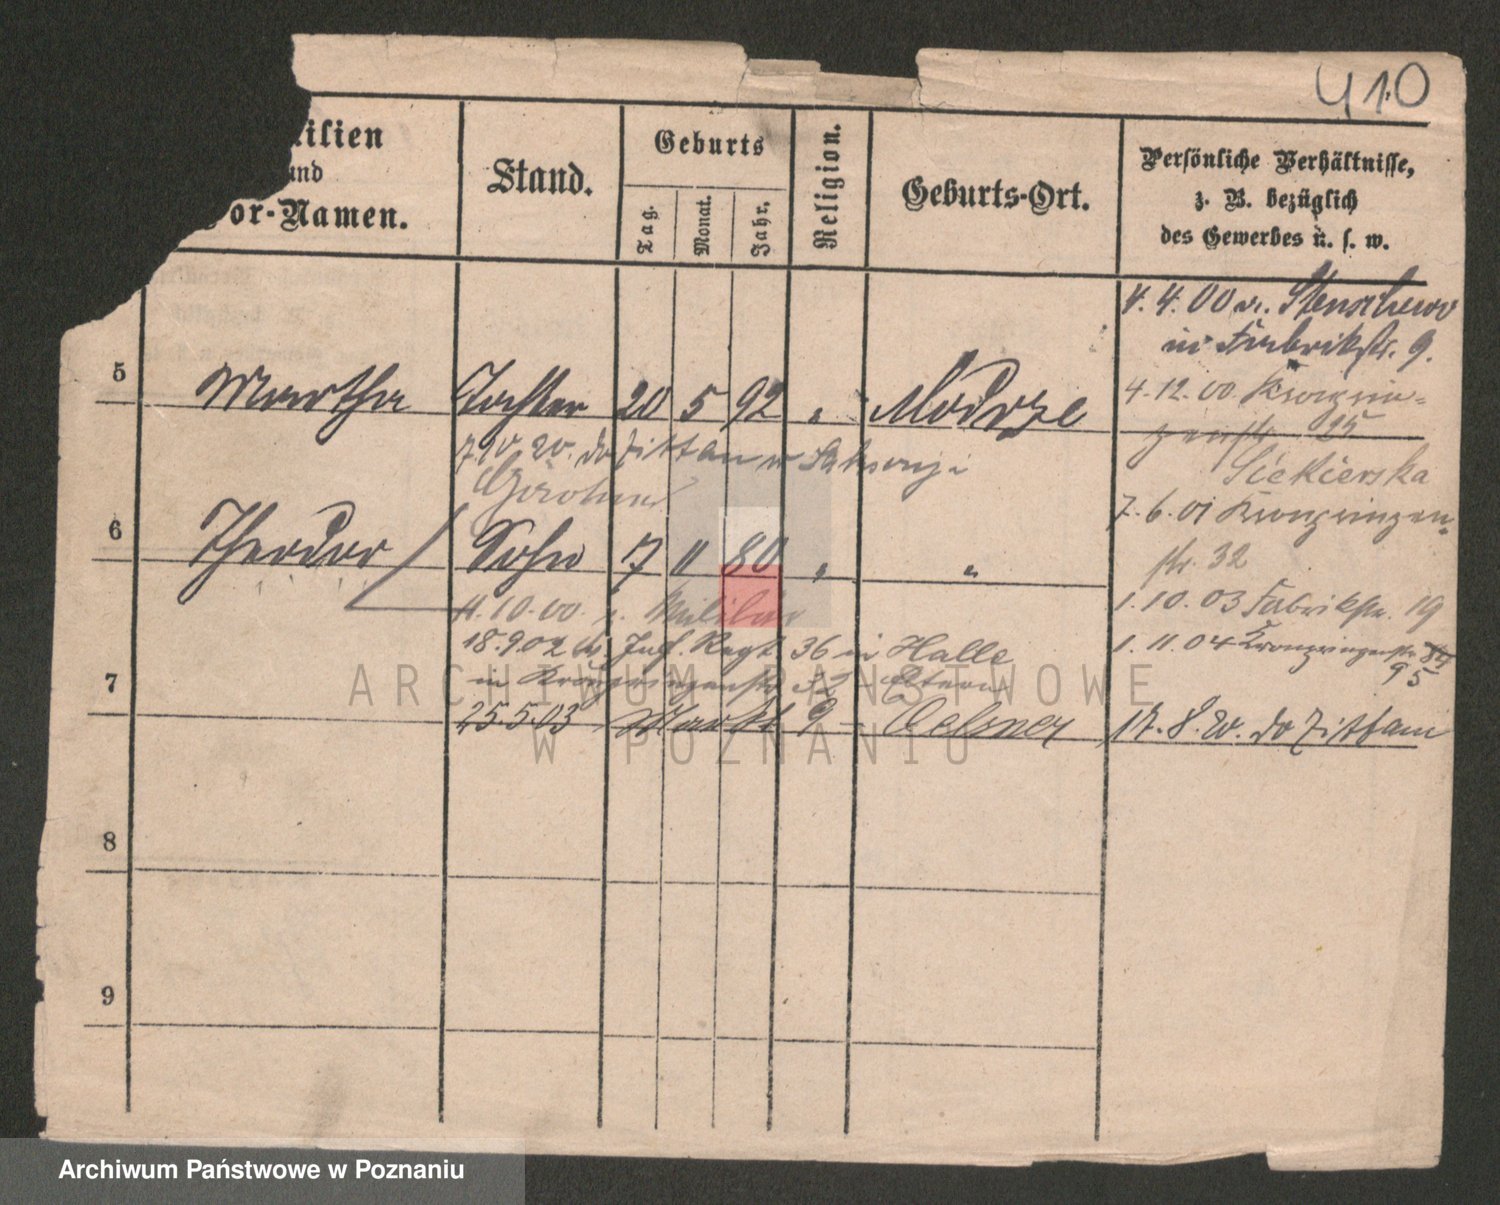 410
ilien
und
or-Namen.
Stand.
Geburts
Tag.
Monat.
Jahr.
Religion.
Geburts-Ort.
Persönliche Verhältnisse,
z. B. bezüglich
des Gewerbes u. s. w.
4. 4. 00 v. Stenschewo
in Fabrikstr. 9.
5 Martha Tochter 20 5 92 " Modrze
4. 12. 00. Kronprin=
zenstr 25
7 20. do Zittau w Saksonji
Siekierska
7. 6. 01 Kronprinzen=
str. 32
6 Theodor Sohn 17 11 80 " "
1. 10. 03 Fabrikstr. 19
10. 00. z. Militär
18. 9. 02 Inf. Regt 36 in Halle
1. 11. 04 Kronprinzenstr
95
in Kronprinzenstr 32 Eltern
7
25. 5. 03 Markt 9 - Oelsner
17. 8. 20. do Zittau
8
9
ARCHIWUM PAŃSTWOWE
W POZNANIU
Archiwum Państwowe w Poznaniu